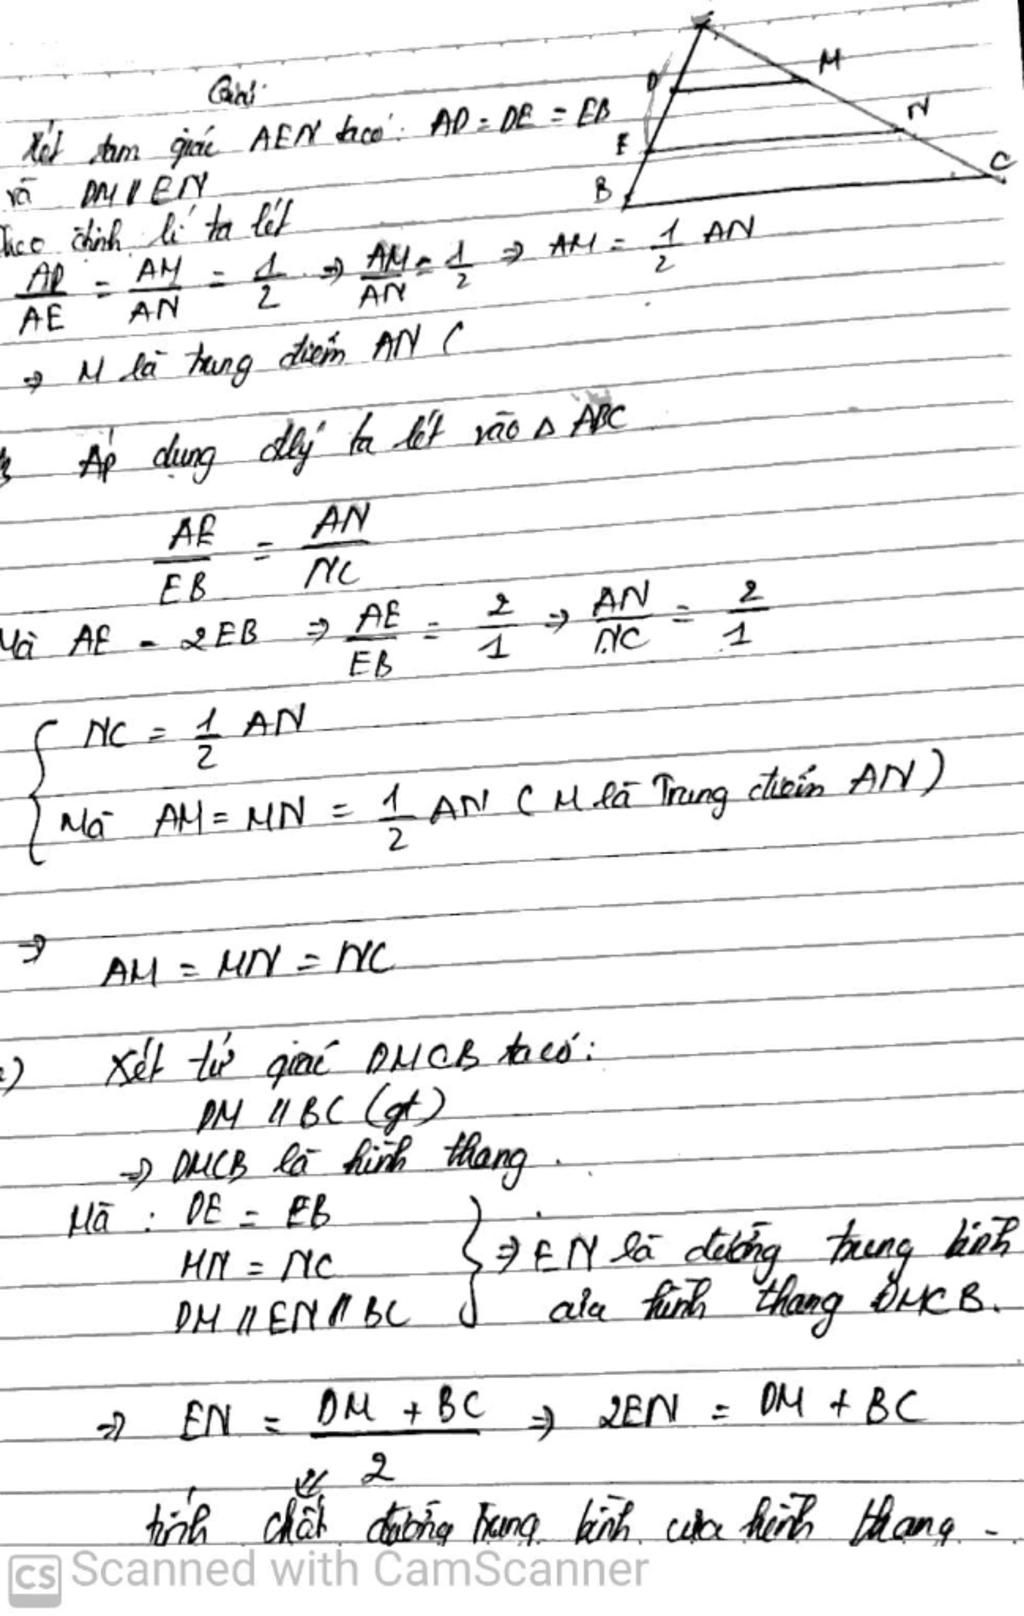 Giải:
Xét tam giác AEN ta có: AD = DE = EB
và DM // EN
Theo định lí ta lét
AD/AE = AM/AN = 1/2 ⇒ AM/AN = 1/2 ⇒ AM = 1/2 AN
⇒ M là trung điểm AN (
Áp dụng đlý ta lét vào Δ ABC
AE/EB = AN/NC
Mà AE = 2EB ⇒ AE/EB = 2/1 ⇒ AN/NC = 2/1
{ NC = 1/2 AN
Mà AM = MN = 1/2 AN ( M là Trung điểm AN )
⇒ AM = MN = NC
c) Xét tứ giác DMCB ta có:
DM // BC (gt)
⇒ DMCB là hình thang.
Mà : DE = EB
MN = NC
DM // EN // BC
} ⇒ EN là đường trung bình
của hình thang DMCB.
⇒ EN = DM + BC / 2 ⇒ 2EN = DM + BC
tính chất đường trung bình của hình thang.
D
M
E
N
B
C
CS Scanned with CamScanner